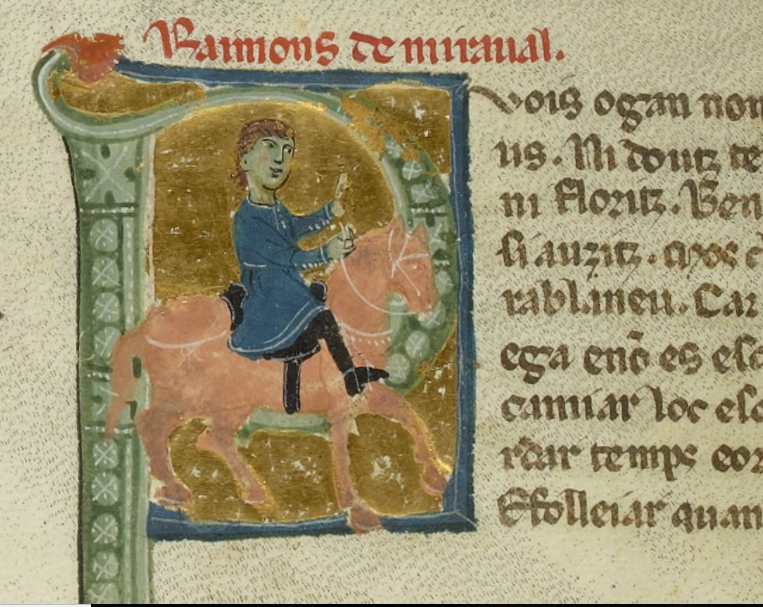 Raimons de miraual.
vois ogan non
us. Ni douz te
ni floritz. Ben
si auzitz. mos c
rablaneu. Car
ega enõ es esc
camiar loc esc
rdar temps eoz
Effolleiar quan